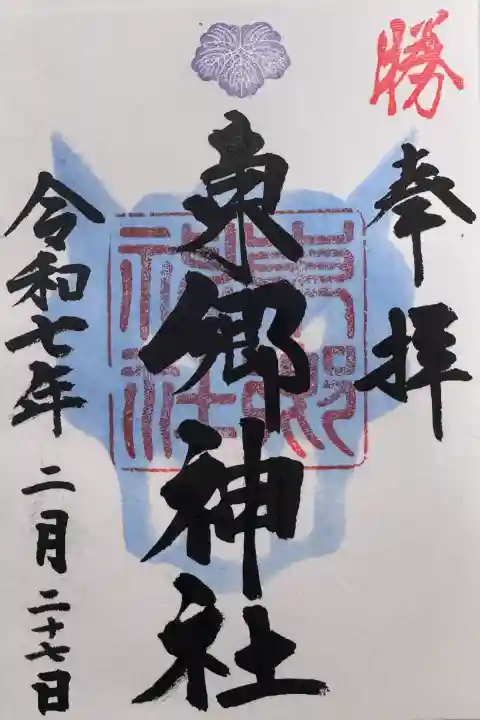 勝
奉拝
東郷神社
東郷神社
令和七年 二月 二十七日